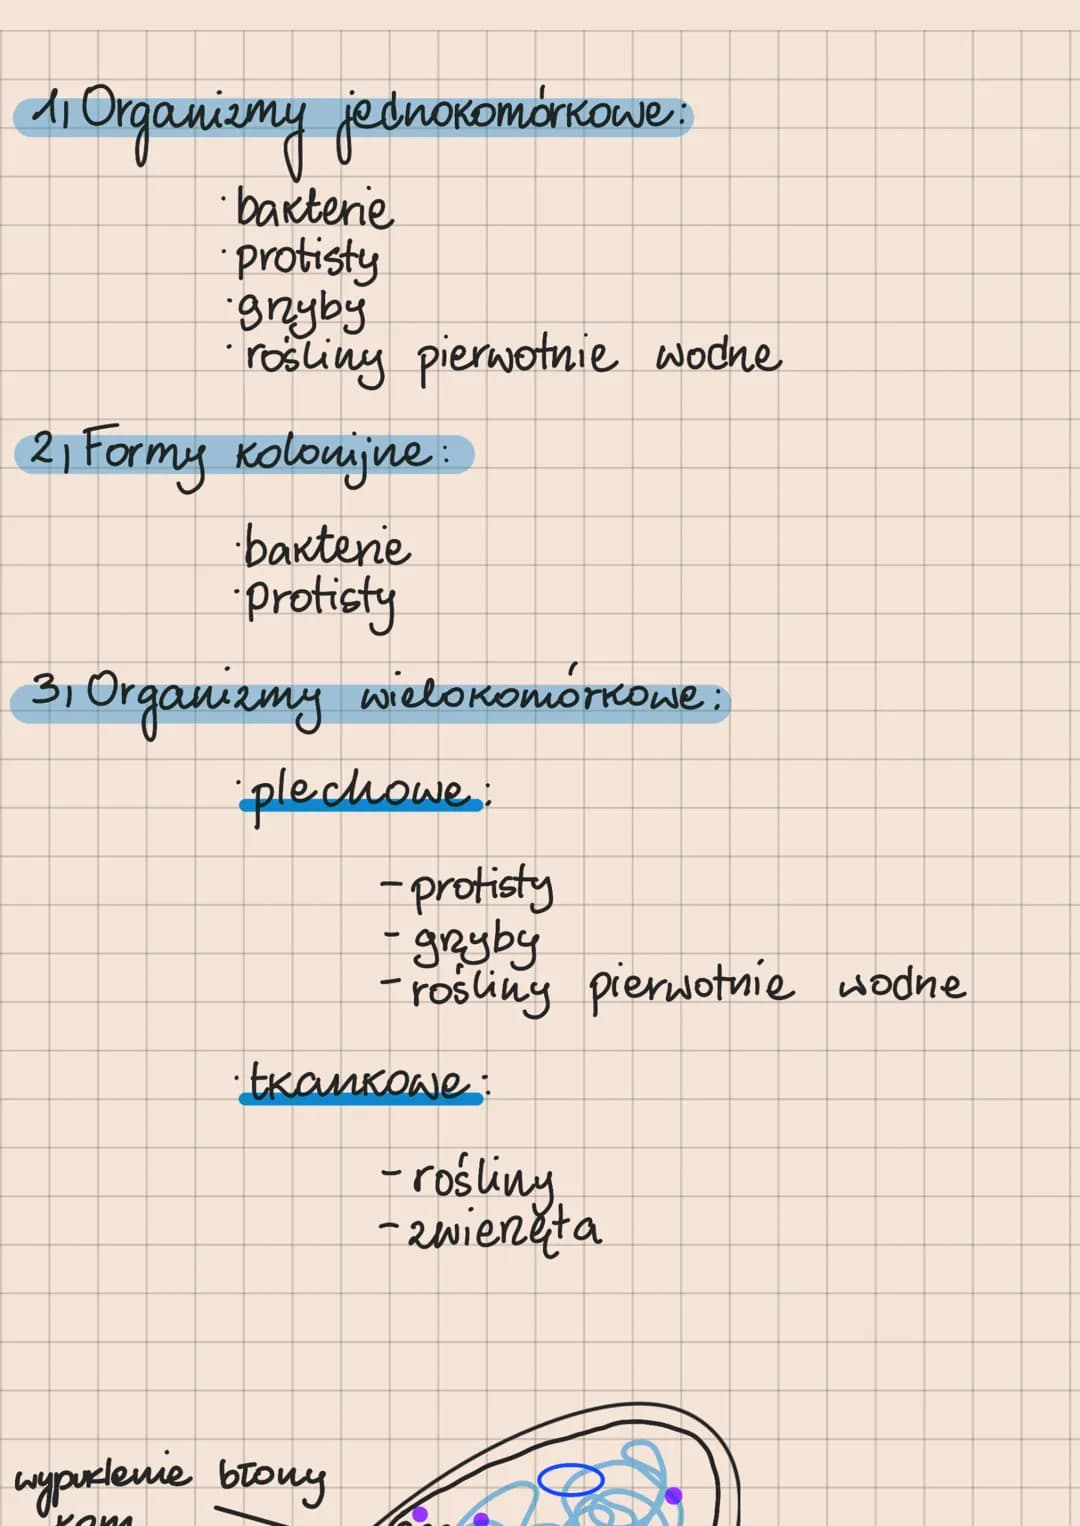 1) Organizmy jednokomórkowe:
· bakterie
· protisty
· grzyby
· rośliny pierwotnie wodne
2) Formy kolonijne:
· bakterie
· protisty
3) Organizmy wielokomórkowe:
· plechowe:
- protisty
- grzyby
- rośliny pierwotnie wodne
· tkankowe:
- rośliny
- zwierzęta
wypuklenie błony
kom